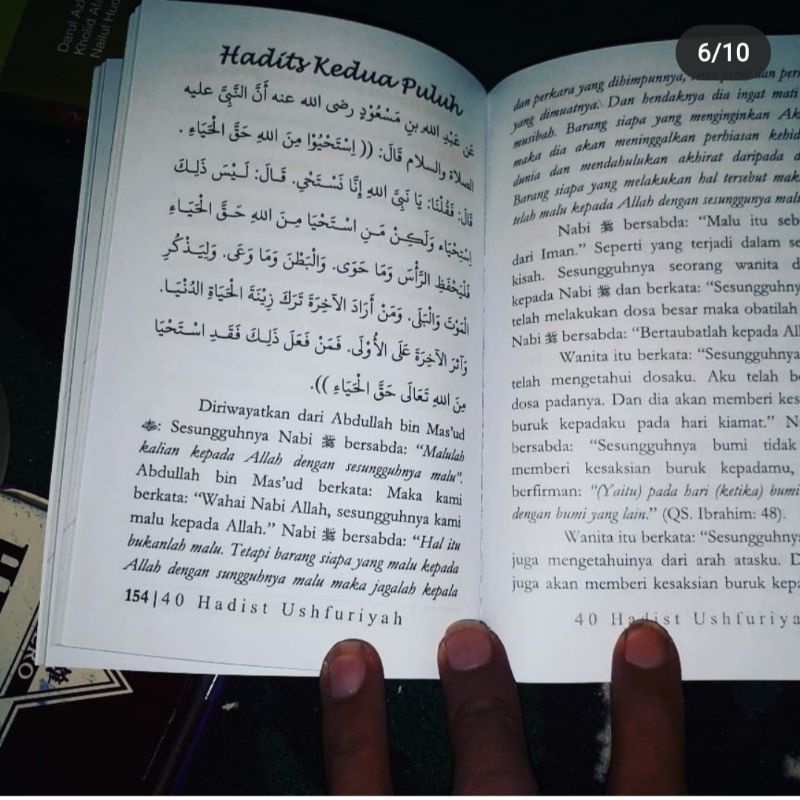 6/10
Darul Az
Kholid Afa
Nailul Hud
Hadits Kedua Puluh
عَنْ عَبْدِ اللهِ بنِ مَسْعُوْدٍ رضى الله عنه أَنَّ النَّبِيَّ عليه
الصلاة والسلام قَالَ: (( اِسْتَحْيُوْا مِنَ اللهِ حَقَّ الْحَيَاءِ .
قَالَ: فَقُلْنَا: يَا نَبِيَّ اللهِ إِنَّا نَسْتَحْيِ. قَـالَ: لَـيْسَ ذَلِـكَ
اِسْتِحْيَاء وَلَكِـنْ مَـنِ اسْـتَحْيَا مِـنَ اللهِ حَـقَّ الْحَيَـاءِ
فَلْيَحْفَظِ الرَّأْسَ وَمَا حَوَى. وَالْبَطْنَ وَمَا وَعَى. وَلْيَـذْكُرِ
الْمَوْتَ وَالْبَلَى. وَمَنْ أَرَادَ الآخِرَةَ تَرَكَ زِيْنَةَ الْحَيَاةِ الدُّنْيَـا.
وَآثَرَ الآخِرَةَ عَلَى الأُوْلَى. فَمَنْ فَعَلَ ذَلِـكَ فَقَـدِ اسْـتَحْيَا
مِنَ اللهِ تَعَالَى حَقَّ الْحَيَاءِ )).
Diriwayatkan dari Abdullah bin Mas'ud
: Sesungguhnya Nabi ﷺ bersabda: "Malulah
kalian kepada Allah dengan sesungguhnya malu".
Abdullah bin Mas'ud berkata: Maka kami
berkata: "Wahai Nabi Allah, sesungguhnya kami
malu kepada Allah." Nabi ﷺ bersabda: "Hal itu
bukanlah malu. Tetapi barang siapa yang malu kepada
Allah dengan sungguhnya malu maka jagalah kepala
154|40 Hadist Ushfuriyah
dan perkara yang dihimpunnya, serta perut dan per
yang dimuatnya. Dan hendaknya dia ingat mati
musibah. Barang siapa yang menginginkan Ak
maka dia akan meninggalkan perhiasan kehid
dunia dan mendahulukan akhirat daripada d
Barang siapa yang melakukan hal tersebut mak
telah malu kepada Allah dengan sesunggunya mal
Nabi ﷺ bersabda: "Malu itu seb
dari Iman." Seperti yang terjadi dalam se
kisah. Sesungguhnya seorang wanita d
kepada Nabi ﷺ dan berkata: "Sesungguhny
telah melakukan dosa besar maka obatilah
Nabi ﷺ bersabda: "Bertaubatlah kepada Al
Wanita itu berkata: "Sesungguhnya
telah mengetahui dosaku. Aku telah be
dosa padanya. Dan dia akan memberi kes
buruk kepadaku pada hari kiamat." N
bersabda: "Sesungguhnya bumi tidak
memberi kesaksian buruk kepadamu,
berfirman: "(Yaitu) pada hari (ketika) bumi
dengan bumi yang lain." (QS. Ibrahim: 48).
Wanita itu berkata: "Sesungguhny
juga mengetahuinya dari arah atasku. D
juga akan memberi kesaksian buruk kepa
40 Hadist Ushfuriya